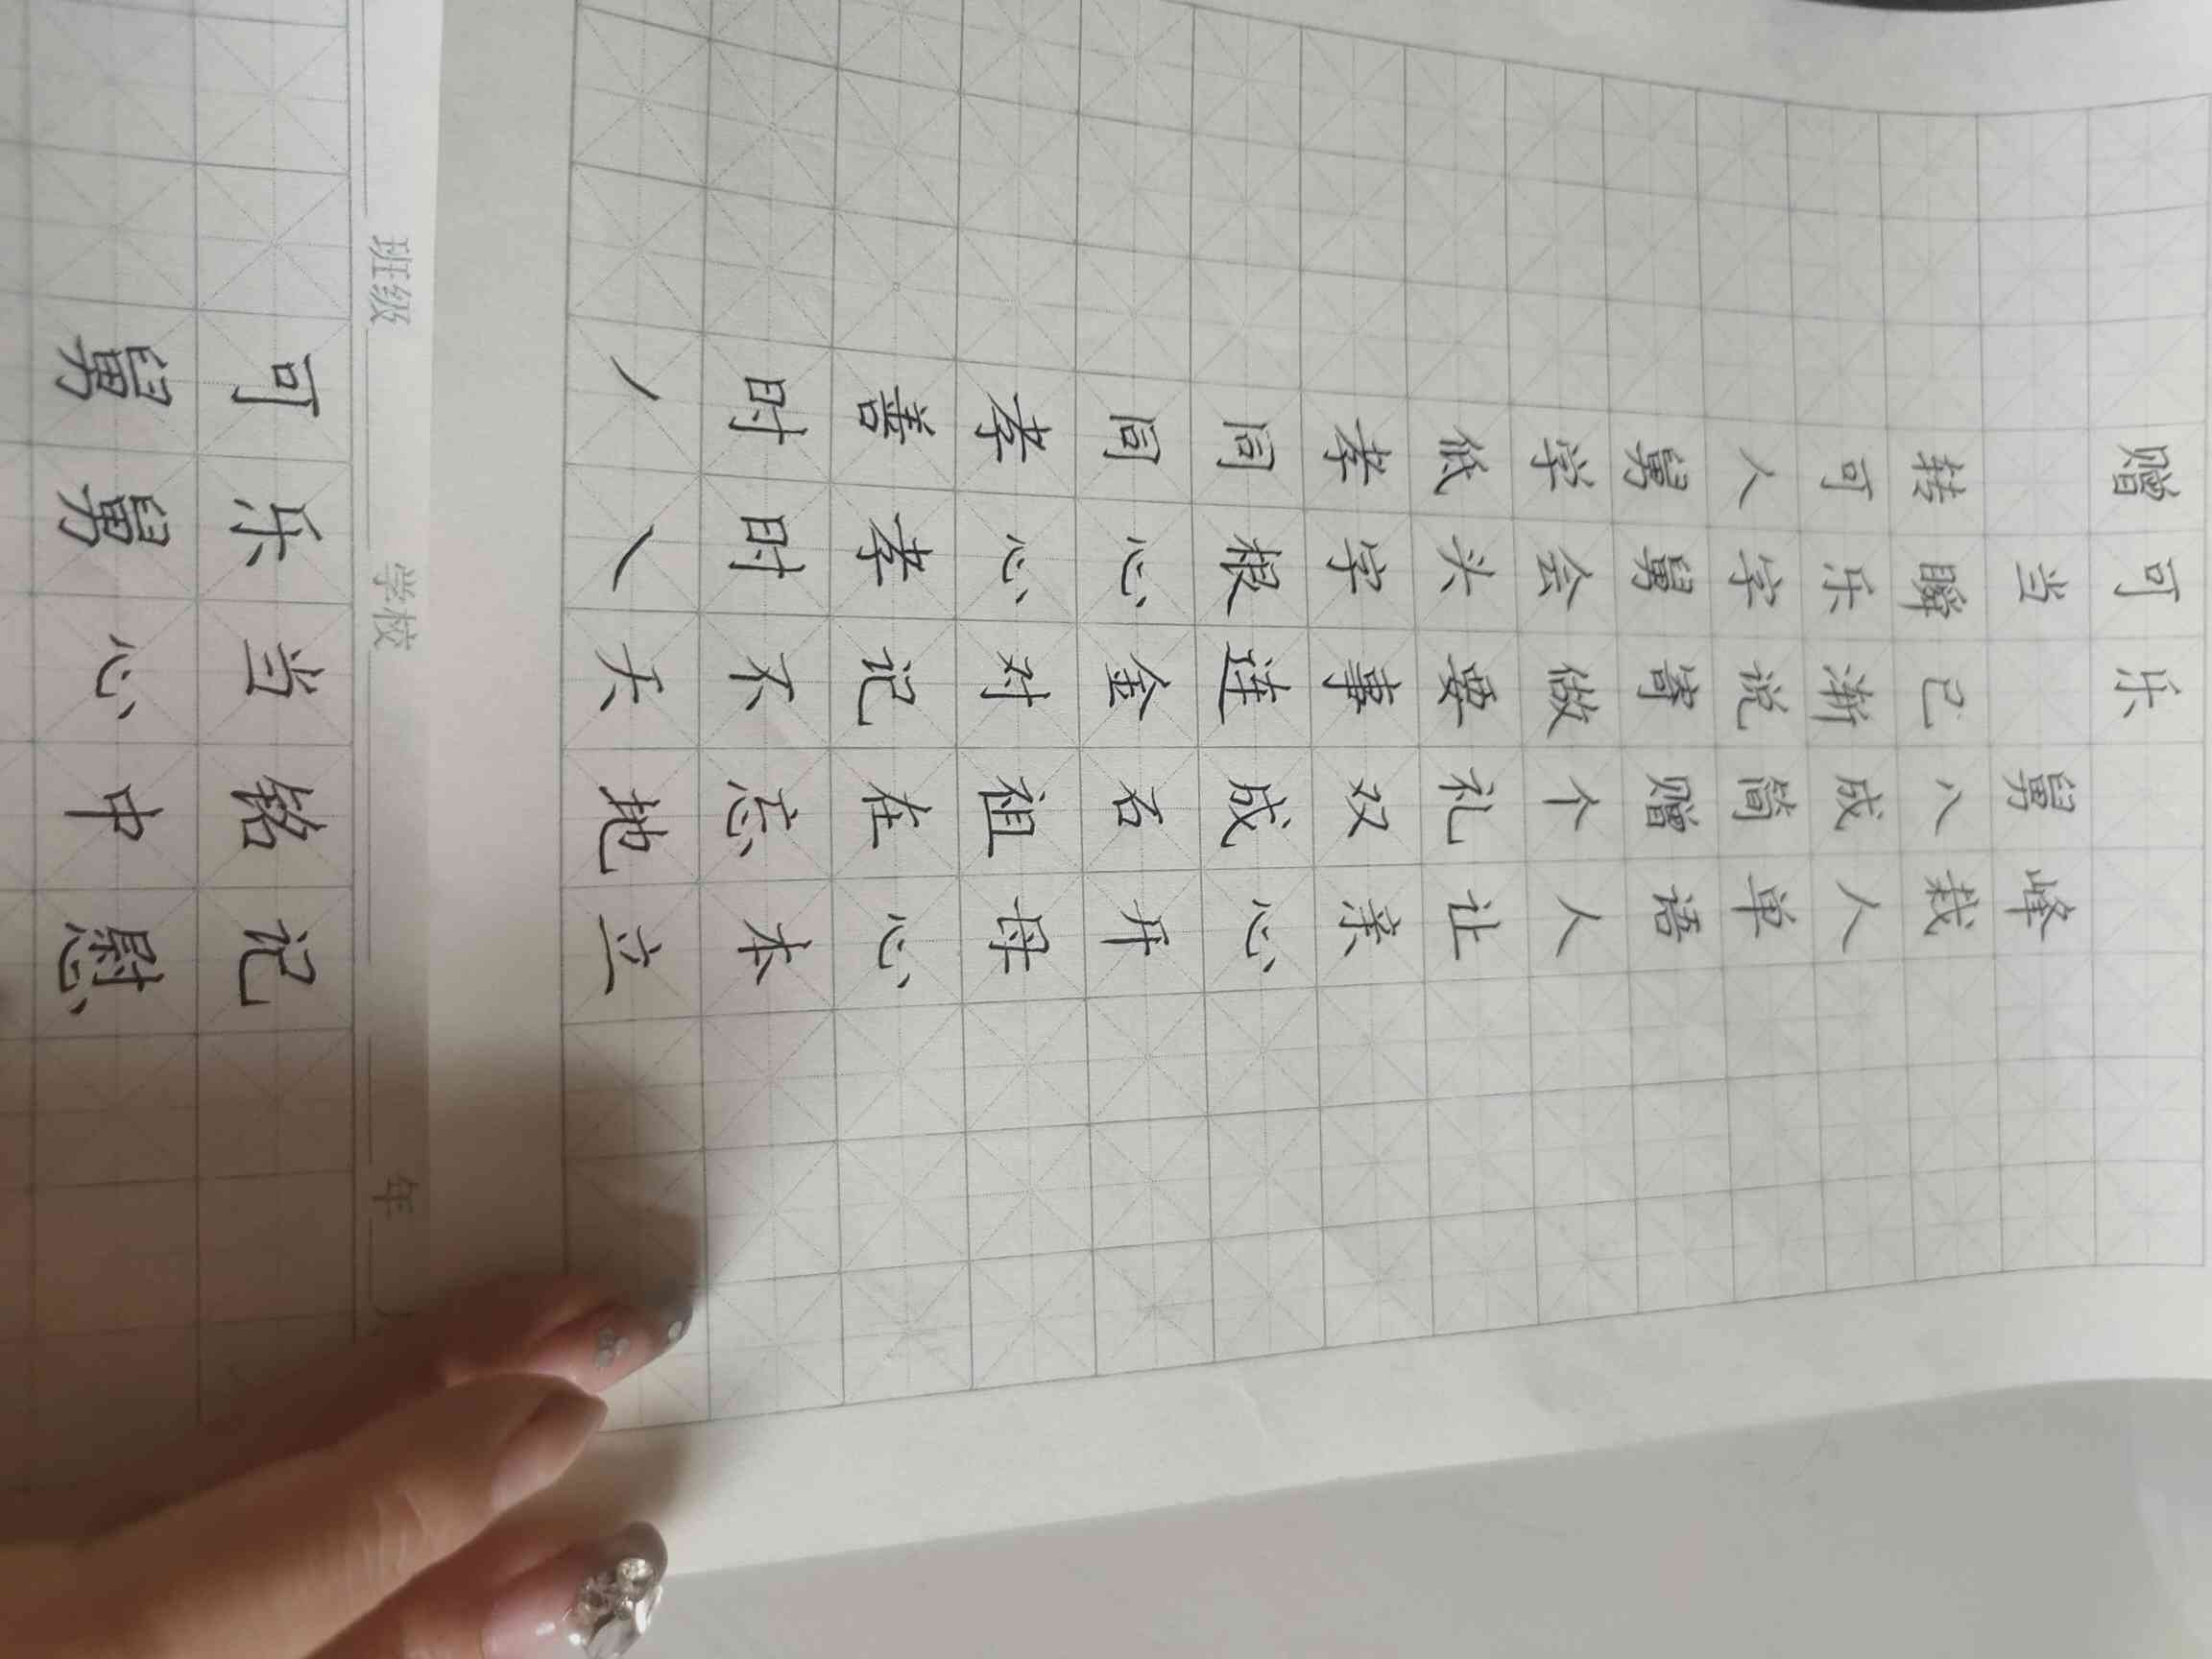 赠可乐
当 舅峰
转瞬已八栽
可乐渐成人
人字说简单
舅舅寄赠语
学会做个人
低头要礼让
孝字事双亲
同根连成心
同心金石开
孝心对祖母
善孝记在心
时时不忘本
丿乀天地立
班级 学校 年
可乐当铭记
舅舅心中慰